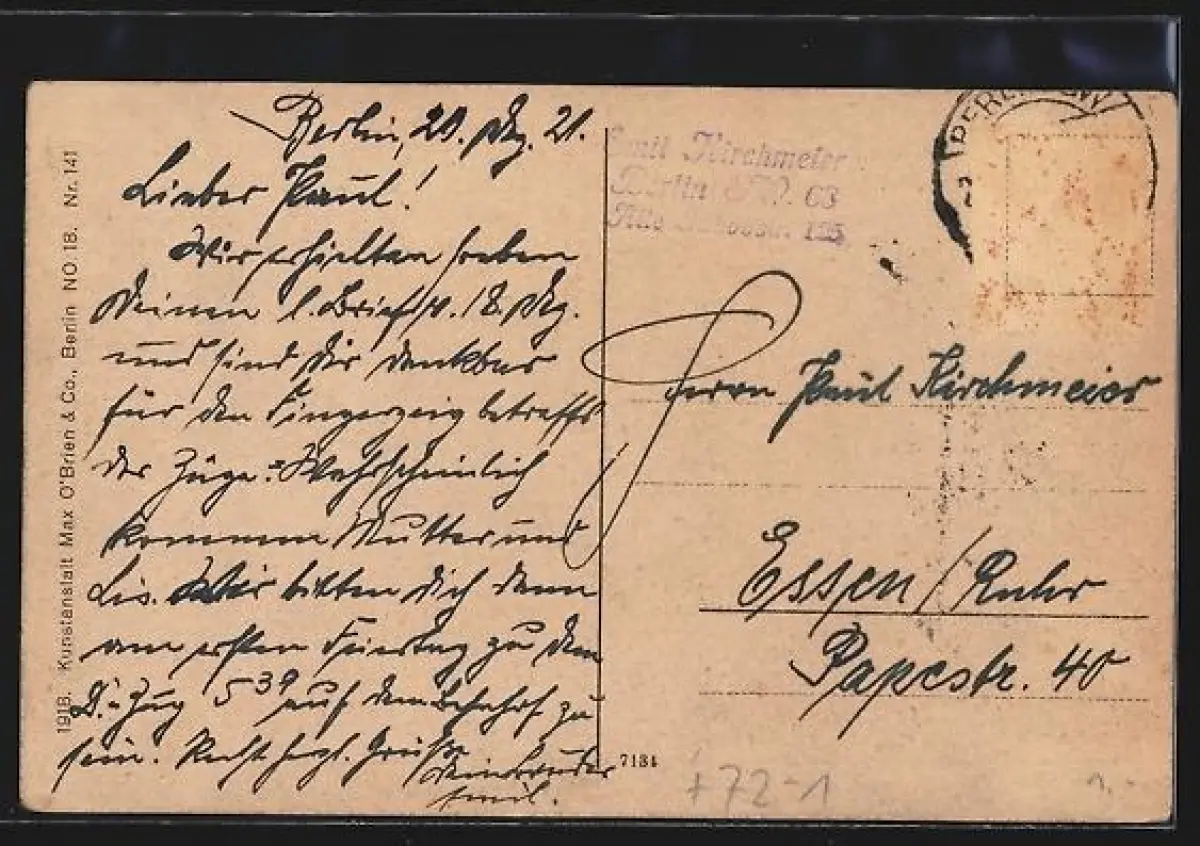 Berlin, 20. Dez. 21.
Lieber Paul!
Wir erhielten soeben
Deinen l. Brief v. 18. Dez.
und sind Dir dankbar
für den Fingerzeig betreffs
der Züge. Wahrscheinlich
kommen Mutter und
Lis. Wir bitten Dich dann
am ersten Feiertag zu dem
D.-Zug 5 39 auf dem Bahnhof zu
sein. Recht herzl. Grüße
Dein Bruder
Emil.
1918. Kunstanstalt Max O'Brien & Co., Berlin NO 18. Nr. 141
Emil Kirchmeier
Berlin 68
125
BERLIN SW
Herrn Paul Kirchmeier
Essen/Ruhr
Papestr. 40
7184
+72-1
1.-